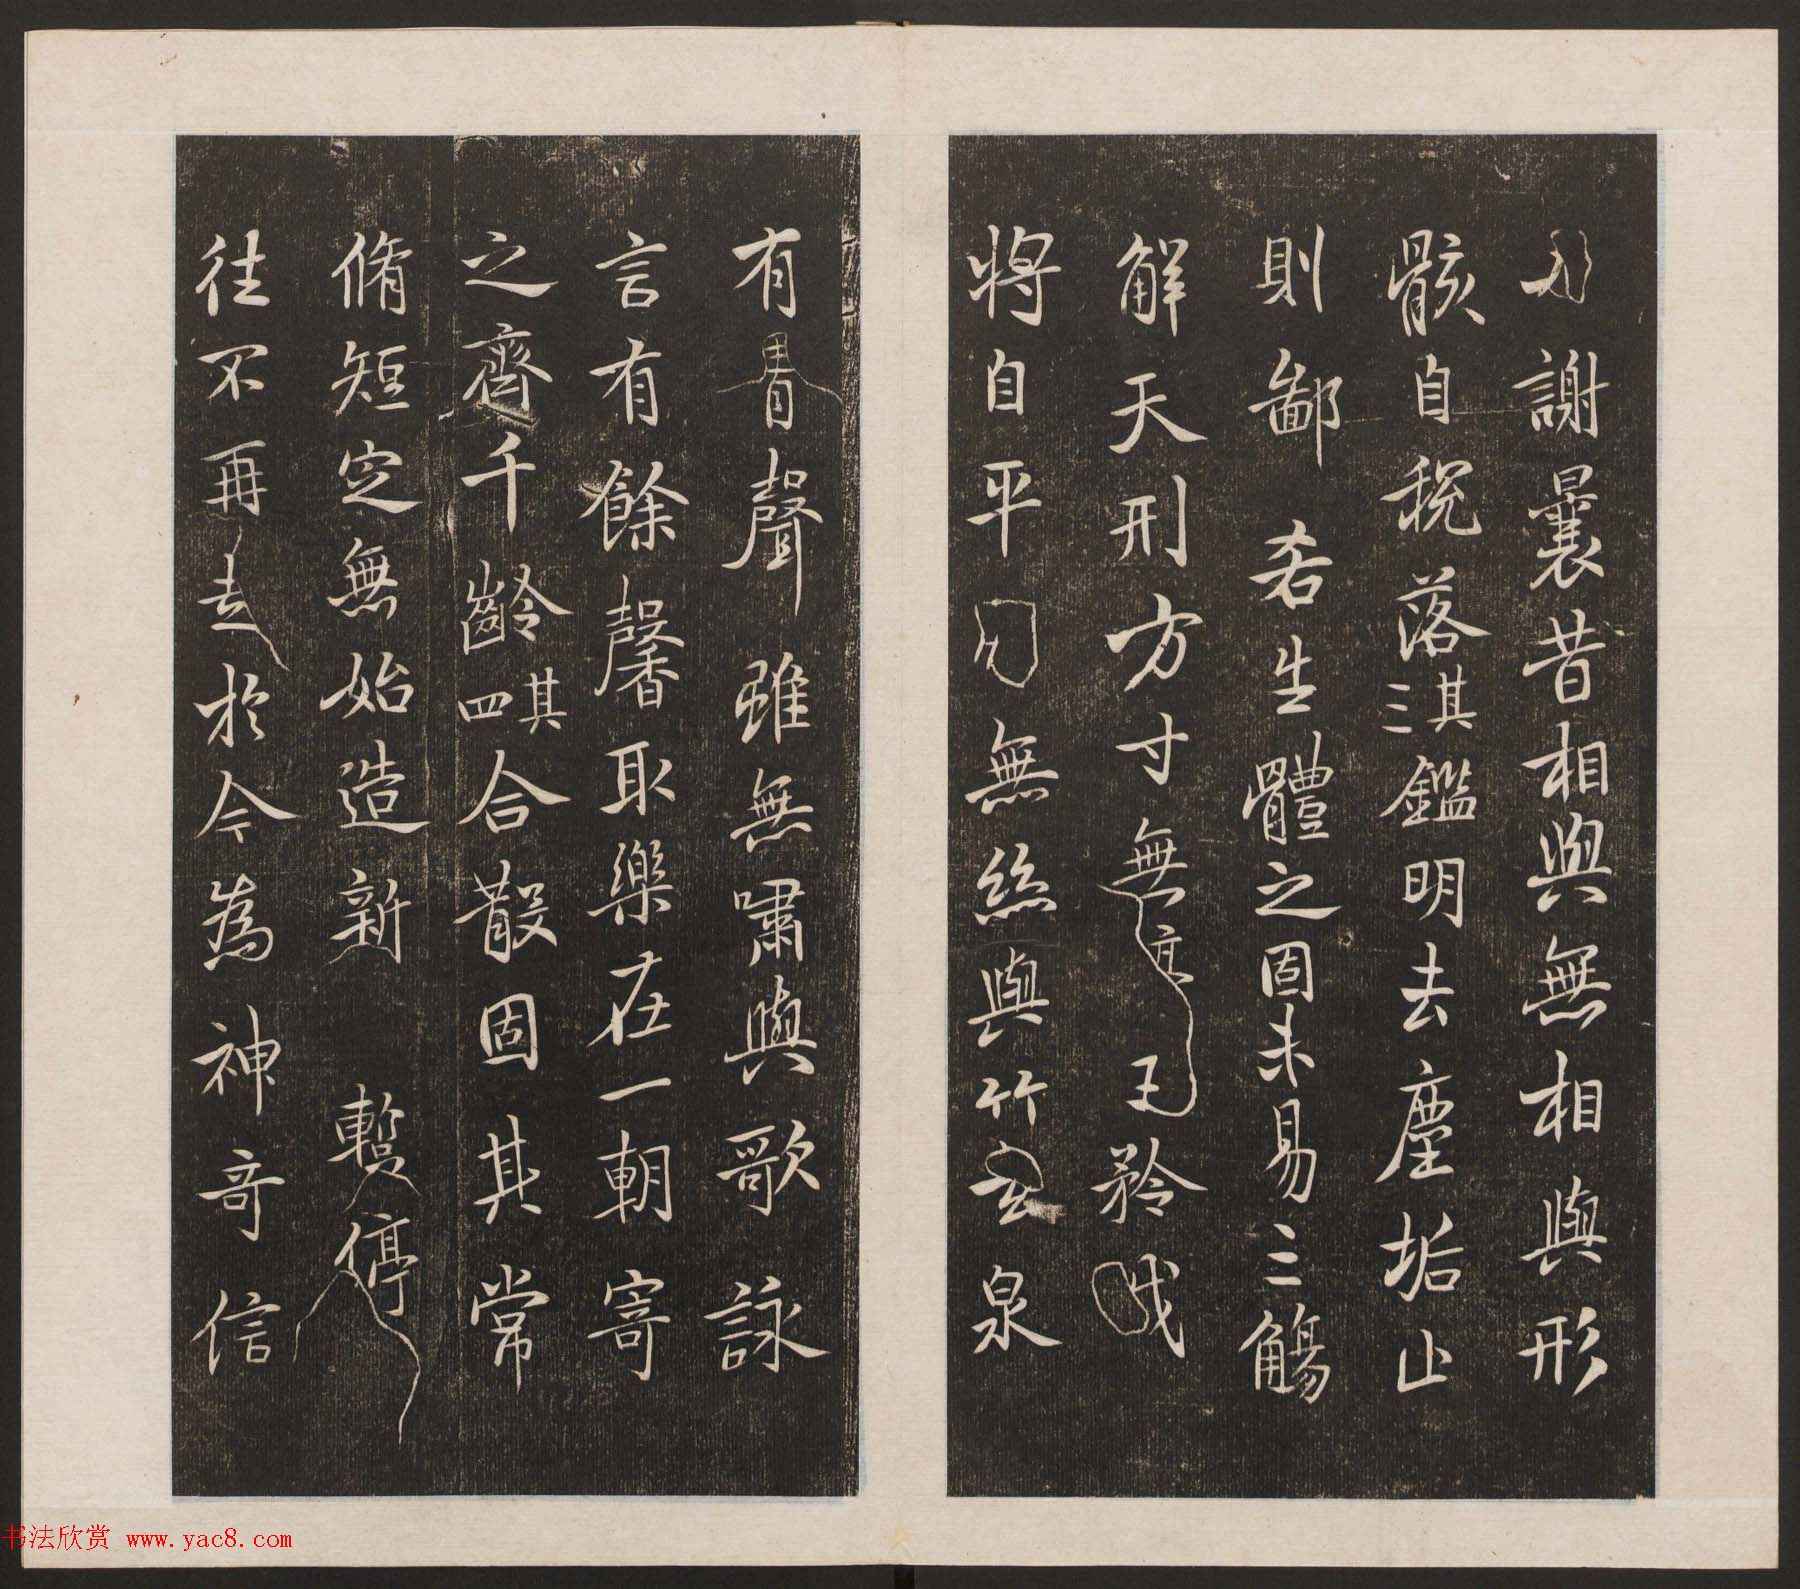 謝曩昔相與無相與形
骸自稅落其三鑑明去塵垢止
則鄙𠫤生體之固未易三觴
解天刑方寸無矜或
將自平無絲與竹玄泉
有聲雖無嘯與歌詠
言有餘馨取樂在一朝寄
之齊千齡其四合散固其常
脩短定無始造新暫停
往不再去於今為神奇信
书法欣赏 www.yac8.com